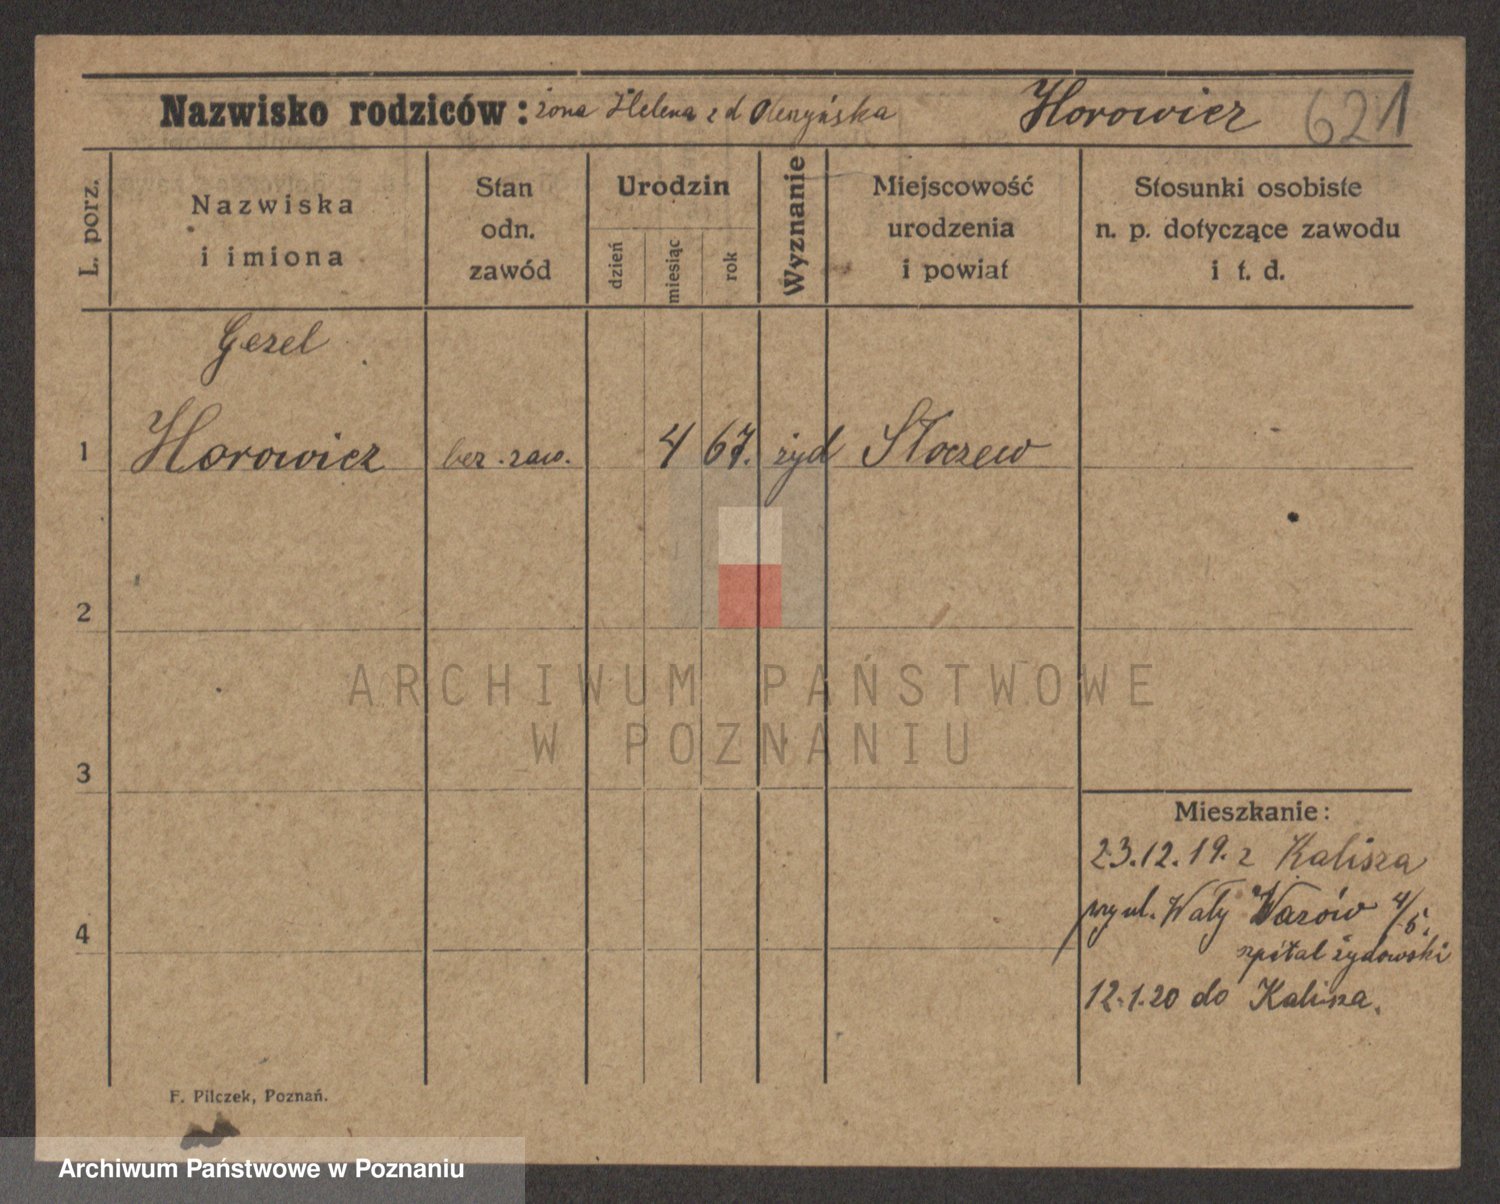 Nazwisko rodziców: żona Helena z d. Horowicz 621
L. porz.
Nazwiska
i imiona
Stan
odn.
zawód
Urodzin
dzień
miesiąc
rok
Wyznanie
Miejscowość
urodzenia
i powiat
Stosunki osobiste
n. p. dotyczące zawodu
i t. d.
Gezel
1 Horowicz bez. zaw. 4 67. żyd Stoczew
2
ARCHIWUM PAŃSTWOWE
W POZNANIU
3
Mieszkanie:
23.12.19. z Kalisza
4
przy ul. Wały Wazów 4/5.
szpital żydowski
12.1.20 do Kalisza.
F. Pilczek, Poznań.
Archiwum Państwowe w Poznaniu